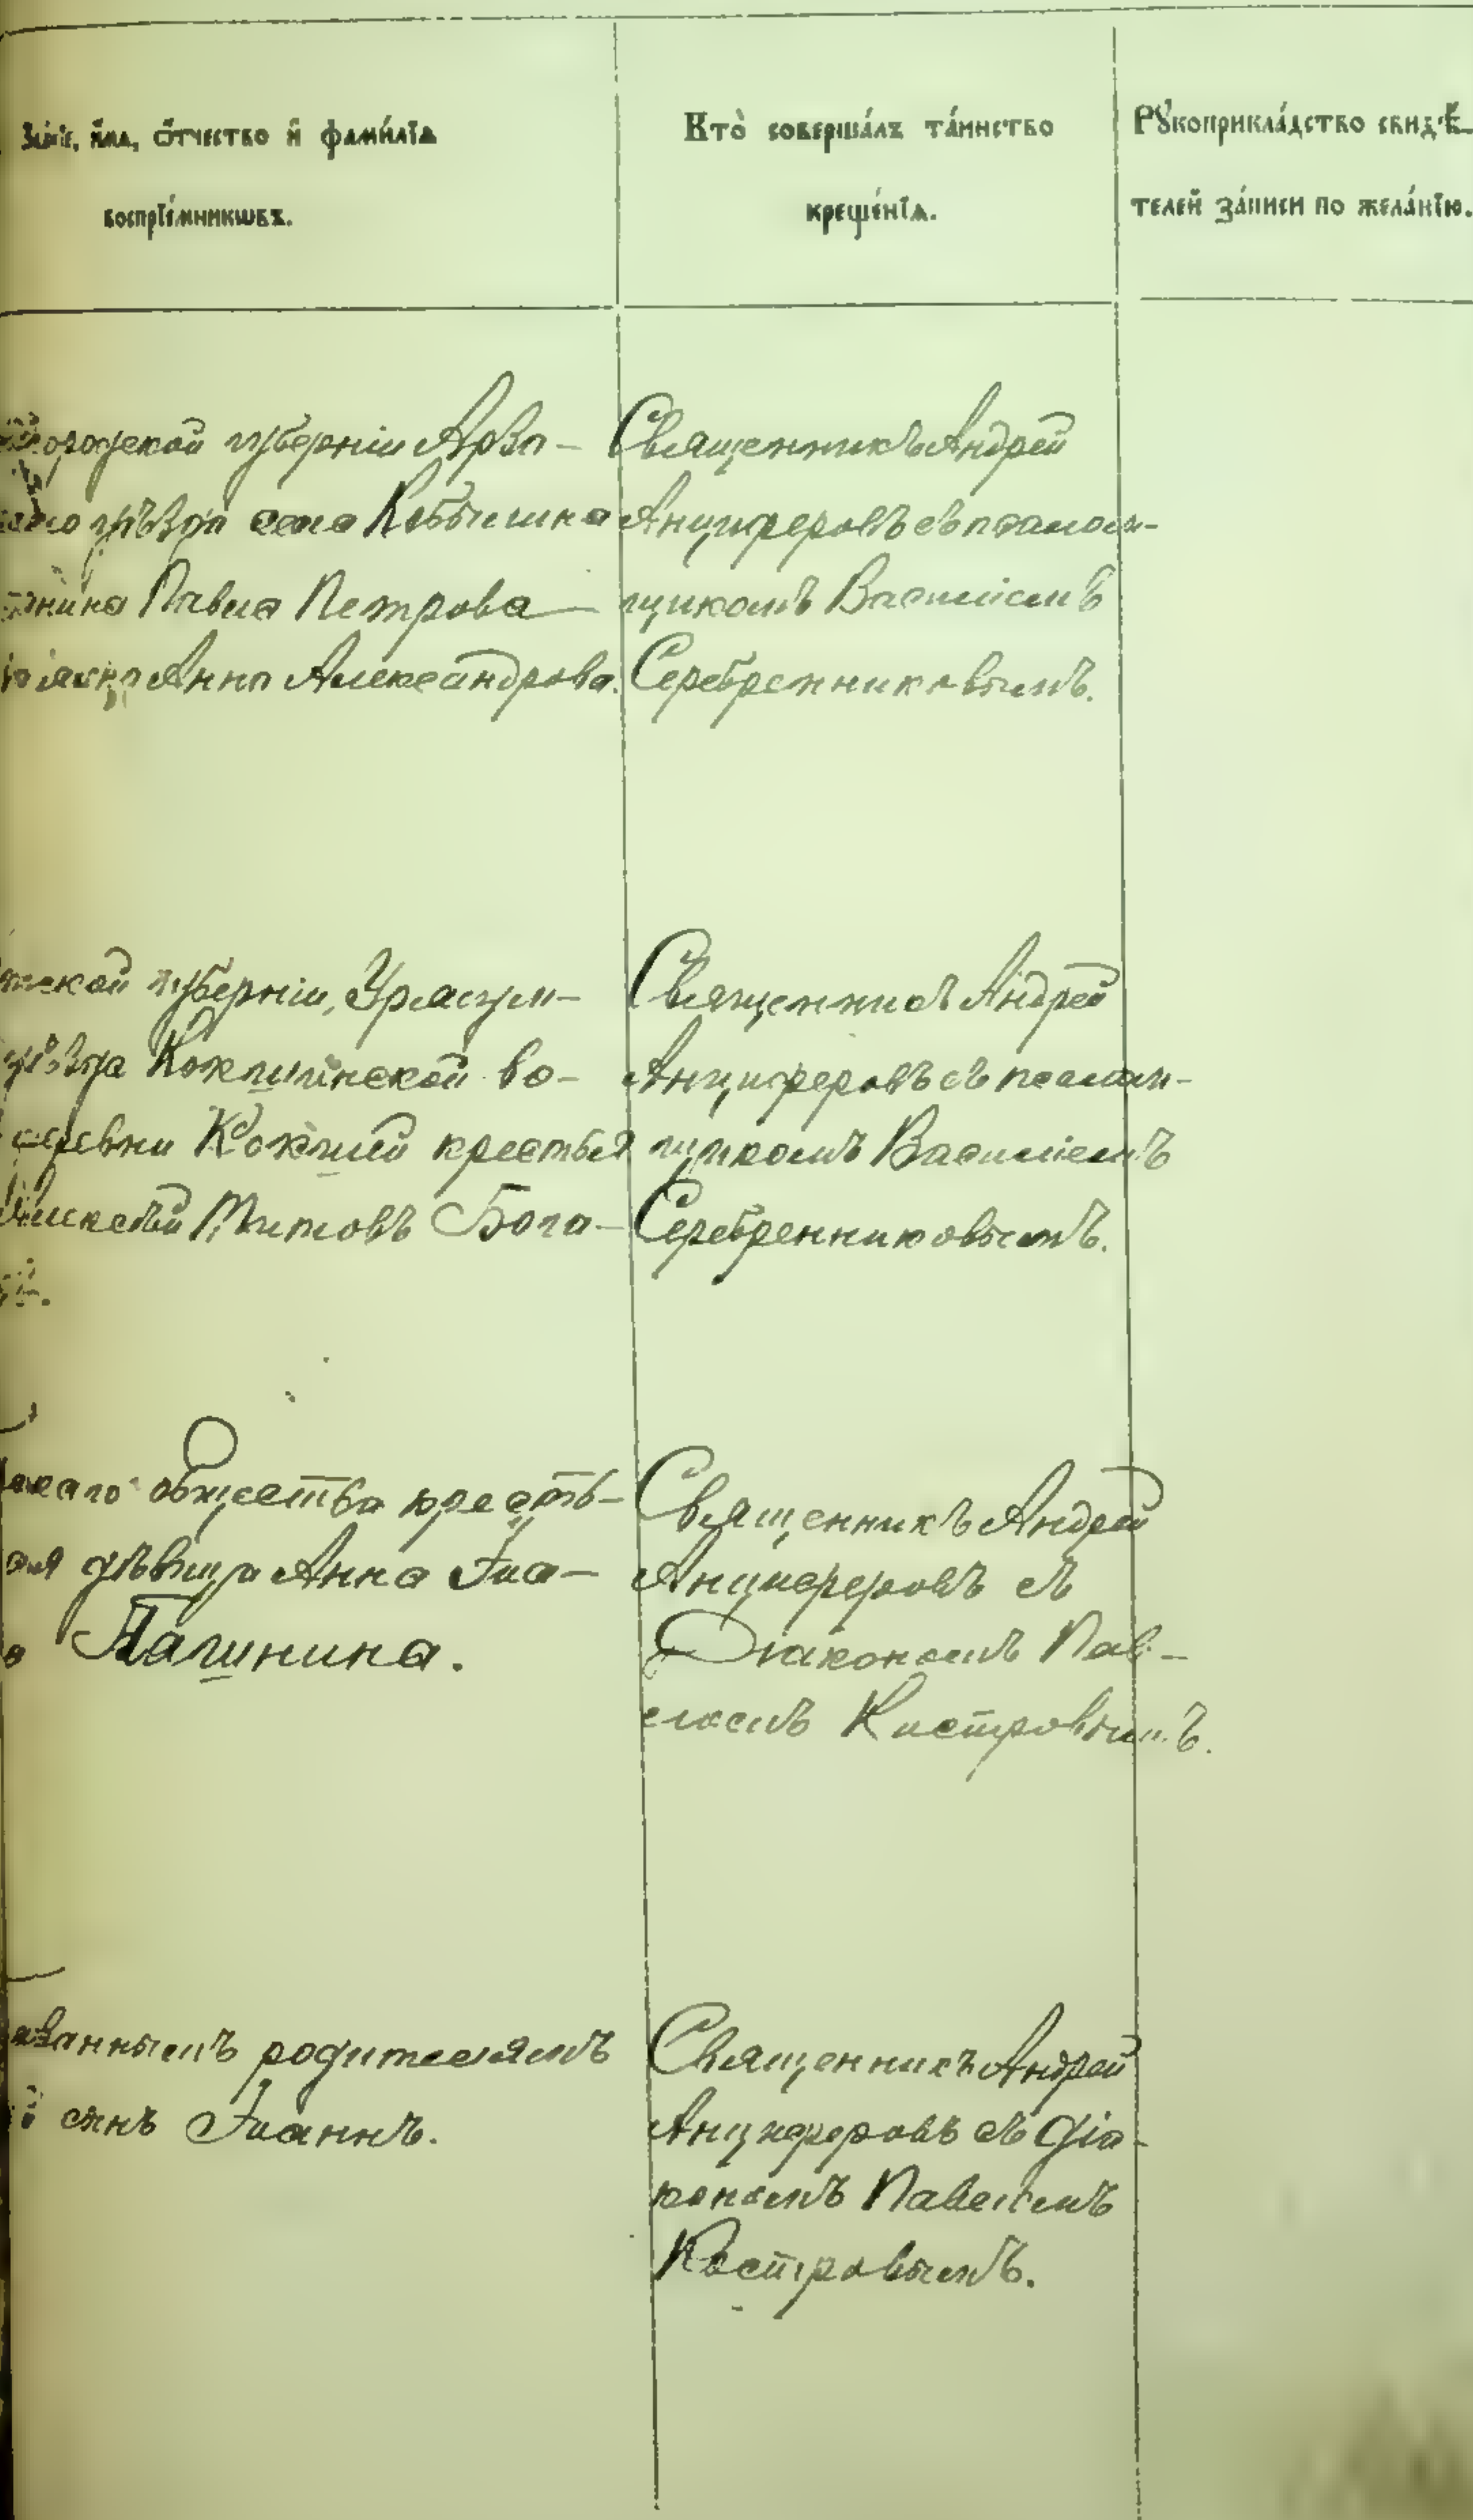 Званіе, имѧ, отчество и фамилія
воспріемникѡвъ.
Кто совершалъ таинство
крещенія.
Рꙋкоприкладство свидѣ-
телей записи по желанію.
городской губерніи Арза-
уѣзда села
Павла Петрова
Анна Александрова.
Священникъ Андрей
Анциферовъ съ псалом-
щикомъ Василіемъ
Серебренниковымъ.
губерніи, Уржум-
уѣзда во-
деревни крестья
Алексѣй Титовъ Бога-
Священникъ Андрей
Анциферовъ съ псалом-
щикомъ Василіемъ
Серебренниковымъ.
скаго общества кресть-
дѣвица Анна Іоа-
Галинина.
Священникъ Андрей
Анциферовъ съ
Діакономъ Пав-
ломъ Костровымъ.
родителямъ
сынъ Іоаннъ.
Священникъ Андрей
Анциферовъ съ діа-
кономъ Павломъ
Костровымъ.